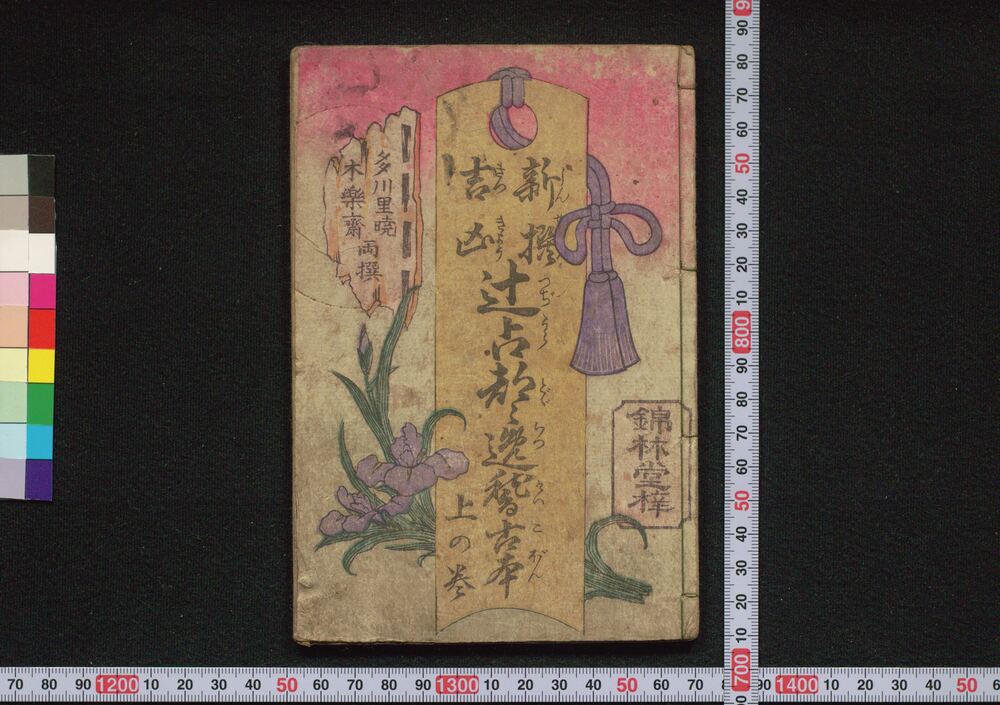 新撰
吉凶
辻占都〻逸稽古本
上の巻
多川里暁
木樂齋
両撰
錦林堂梓
90 80 70 60 50 40 30 20 10 800 90 80 70 60 50 40 30 20 10 700
70 80 90 1200 10 20 30 40 50 60 70 80 90 1300 10 20 30 40 50 60 70 90 1400 10 20 30 40 50